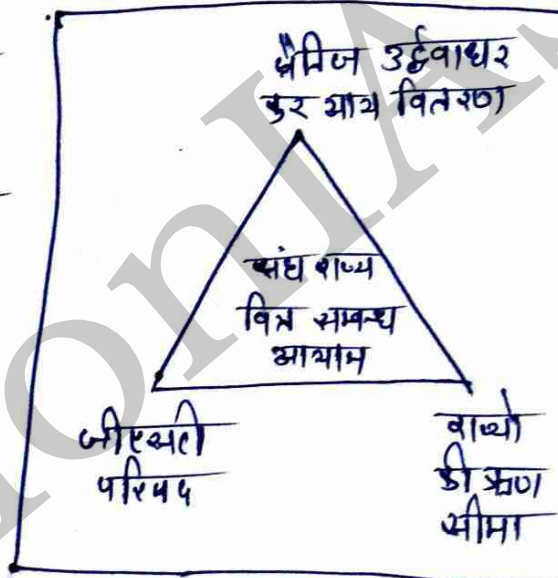 क्षैतिज उर्द्धवाधर
कर आय वितरण
संघ राज्य
वित्त सम्बन्ध
आयाम
जीएसटी
परिषद
राज्यो
की ऋण
सीमा